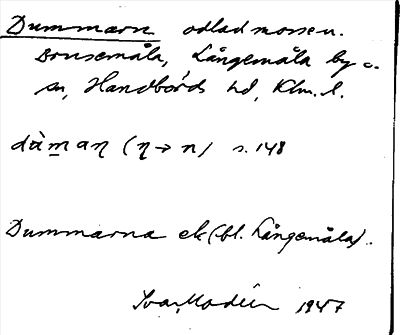 Dummarn odlad mosse n.
Brusemåla, Långemåla by o.
sn, Handbörds hd, Klm. l.
dùman (η→ n) s. 148
Dummarna ek (bl. Långemåla).
Ivar Modéer 1947